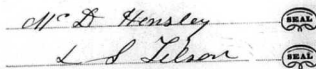 Mc D Hensley SEAL
L S Tilson SEAL